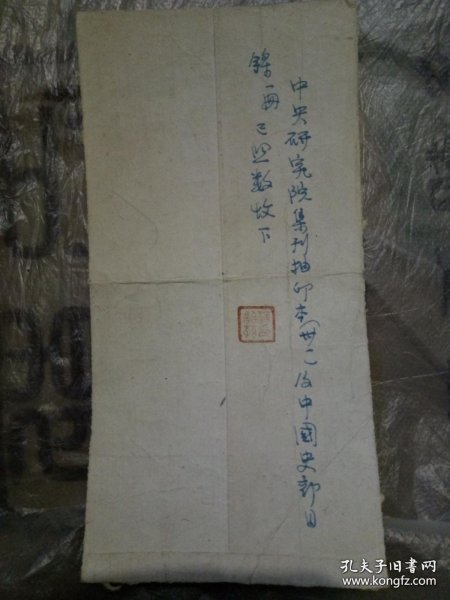 中央研究院集刊抽印本卅二及中國史部目
錄一冊已照數收下
孔夫子旧书网
www.kongfz.com